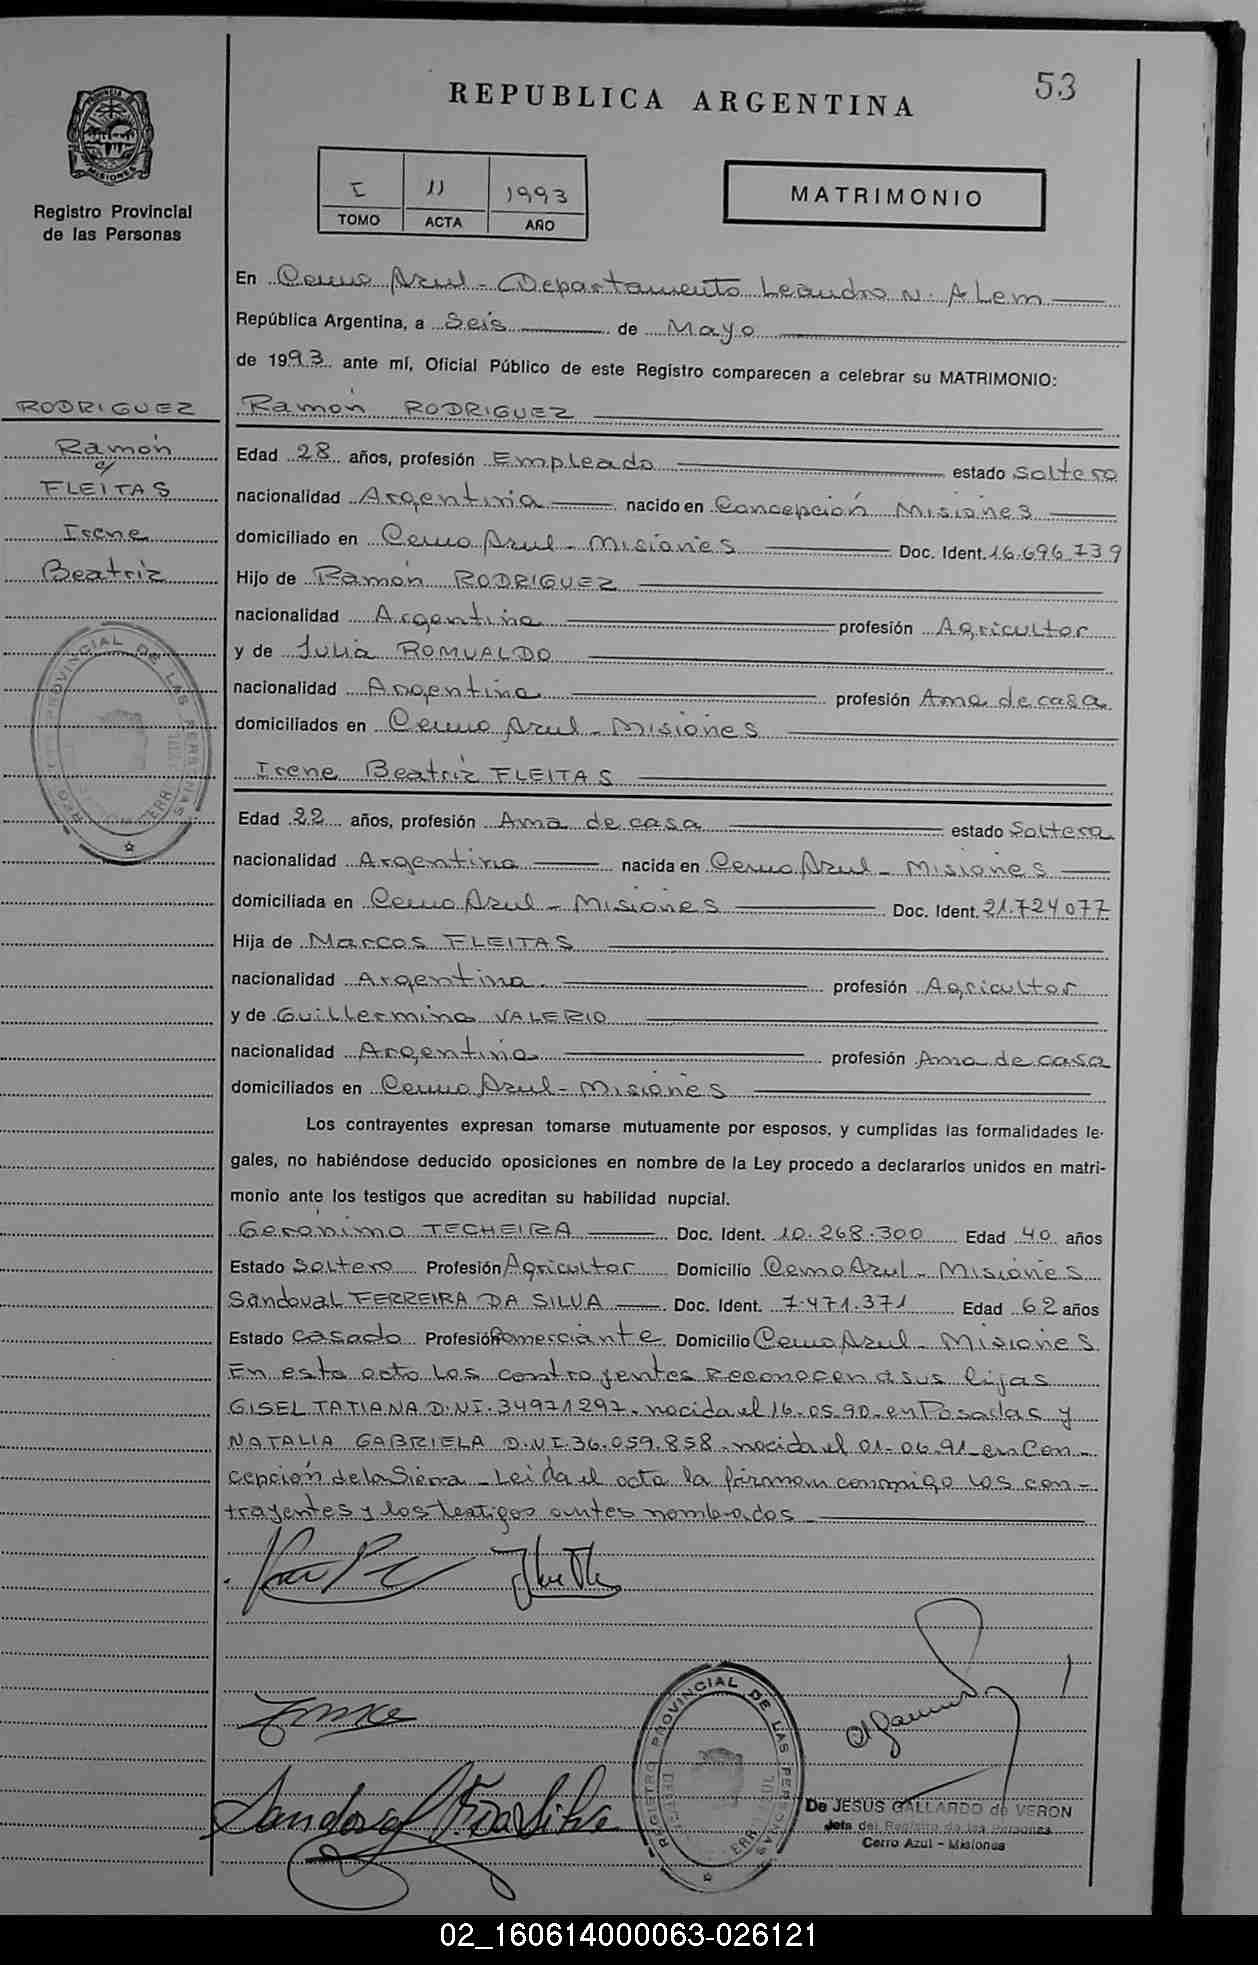 53
REPUBLICA ARGENTINA
PROVINCIA DE MISIONES
Registro Provincial
de las Personas
I 11 1993
TOMO ACTA AÑO
MATRIMONIO
En Cerro Azul - Departamento Leandro N. Alem
República Argentina, a Seis de Mayo
de 1993 ante mí, Oficial Público de este Registro comparecen a celebrar su MATRIMONIO:
RODRIGUEZ
Ramón
c/
FLEITAS
Irene
Beatriz
Ramón RODRIGUEZ
Edad 28 años, profesión Empleado estado Soltero
nacionalidad Argentina nacido en Concepción Misiones
domiciliado en Cerro Azul - Misiones Doc. Ident. 16.696.739
Hijo de Ramón RODRIGUEZ
nacionalidad Argentina profesión Agricultor
y de Julia ROMUALDO
nacionalidad Argentina profesión Ama de casa
domiciliados en Cerro Azul - Misiones
Irene Beatriz FLEITAS
Edad 22 años, profesión Ama de casa estado Soltera
nacionalidad Argentina nacida en Cerro Azul - Misiones
domiciliada en Cerro Azul - Misiones Doc. Ident. 21.724.077
Hija de Marcos FLEITAS
nacionalidad Argentina profesión Agricultor
y de Guillermina VALERIO
nacionalidad Argentina profesión Ama de casa
domiciliados en Cerro Azul - Misiones
Los contrayentes expresan tomarse mutuamente por esposos, y cumplidas las formalidades le-
gales, no habiéndose deducido oposiciones en nombre de la Ley procedo a declararlos unidos en matri-
monio ante los testigos que acreditan su habilidad nupcial.
Gerónimo TECHEIRA Doc. Ident. 10.268.300 Edad 40 años
Estado Soltero Profesión Agricultor Domicilio Cerro Azul - Misiones
Sandoval FERREIRA DA SILVA Doc. Ident. 7.471.371 Edad 62 años
Estado Casado Profesión Comerciante Domicilio Cerro Azul - Misiones
En este acto los contrayentes Reconocen a sus hijas
GISEL TATIANA D.N.I. 34971297 - nacida el 16-05-90 - en Posadas y
NATALIA GABRIELA D.N.I. 36.059.858 - nacida el 01-06-91 en Con-
cepción de la Sierra - Leida el acta la firman conmigo los con-
trayentes y los testigos antes nombrados
REGISTRO PROVINCIAL DE LAS PERSONAS
Sandoval F. Da Silva
REGISTRO PROVINCIAL DE LAS PERSONAS
De JESUS GALLARDO de VERON
Jefa del Registro de las Personas
Cerro Azul - Misiones
02_160614000063-026121